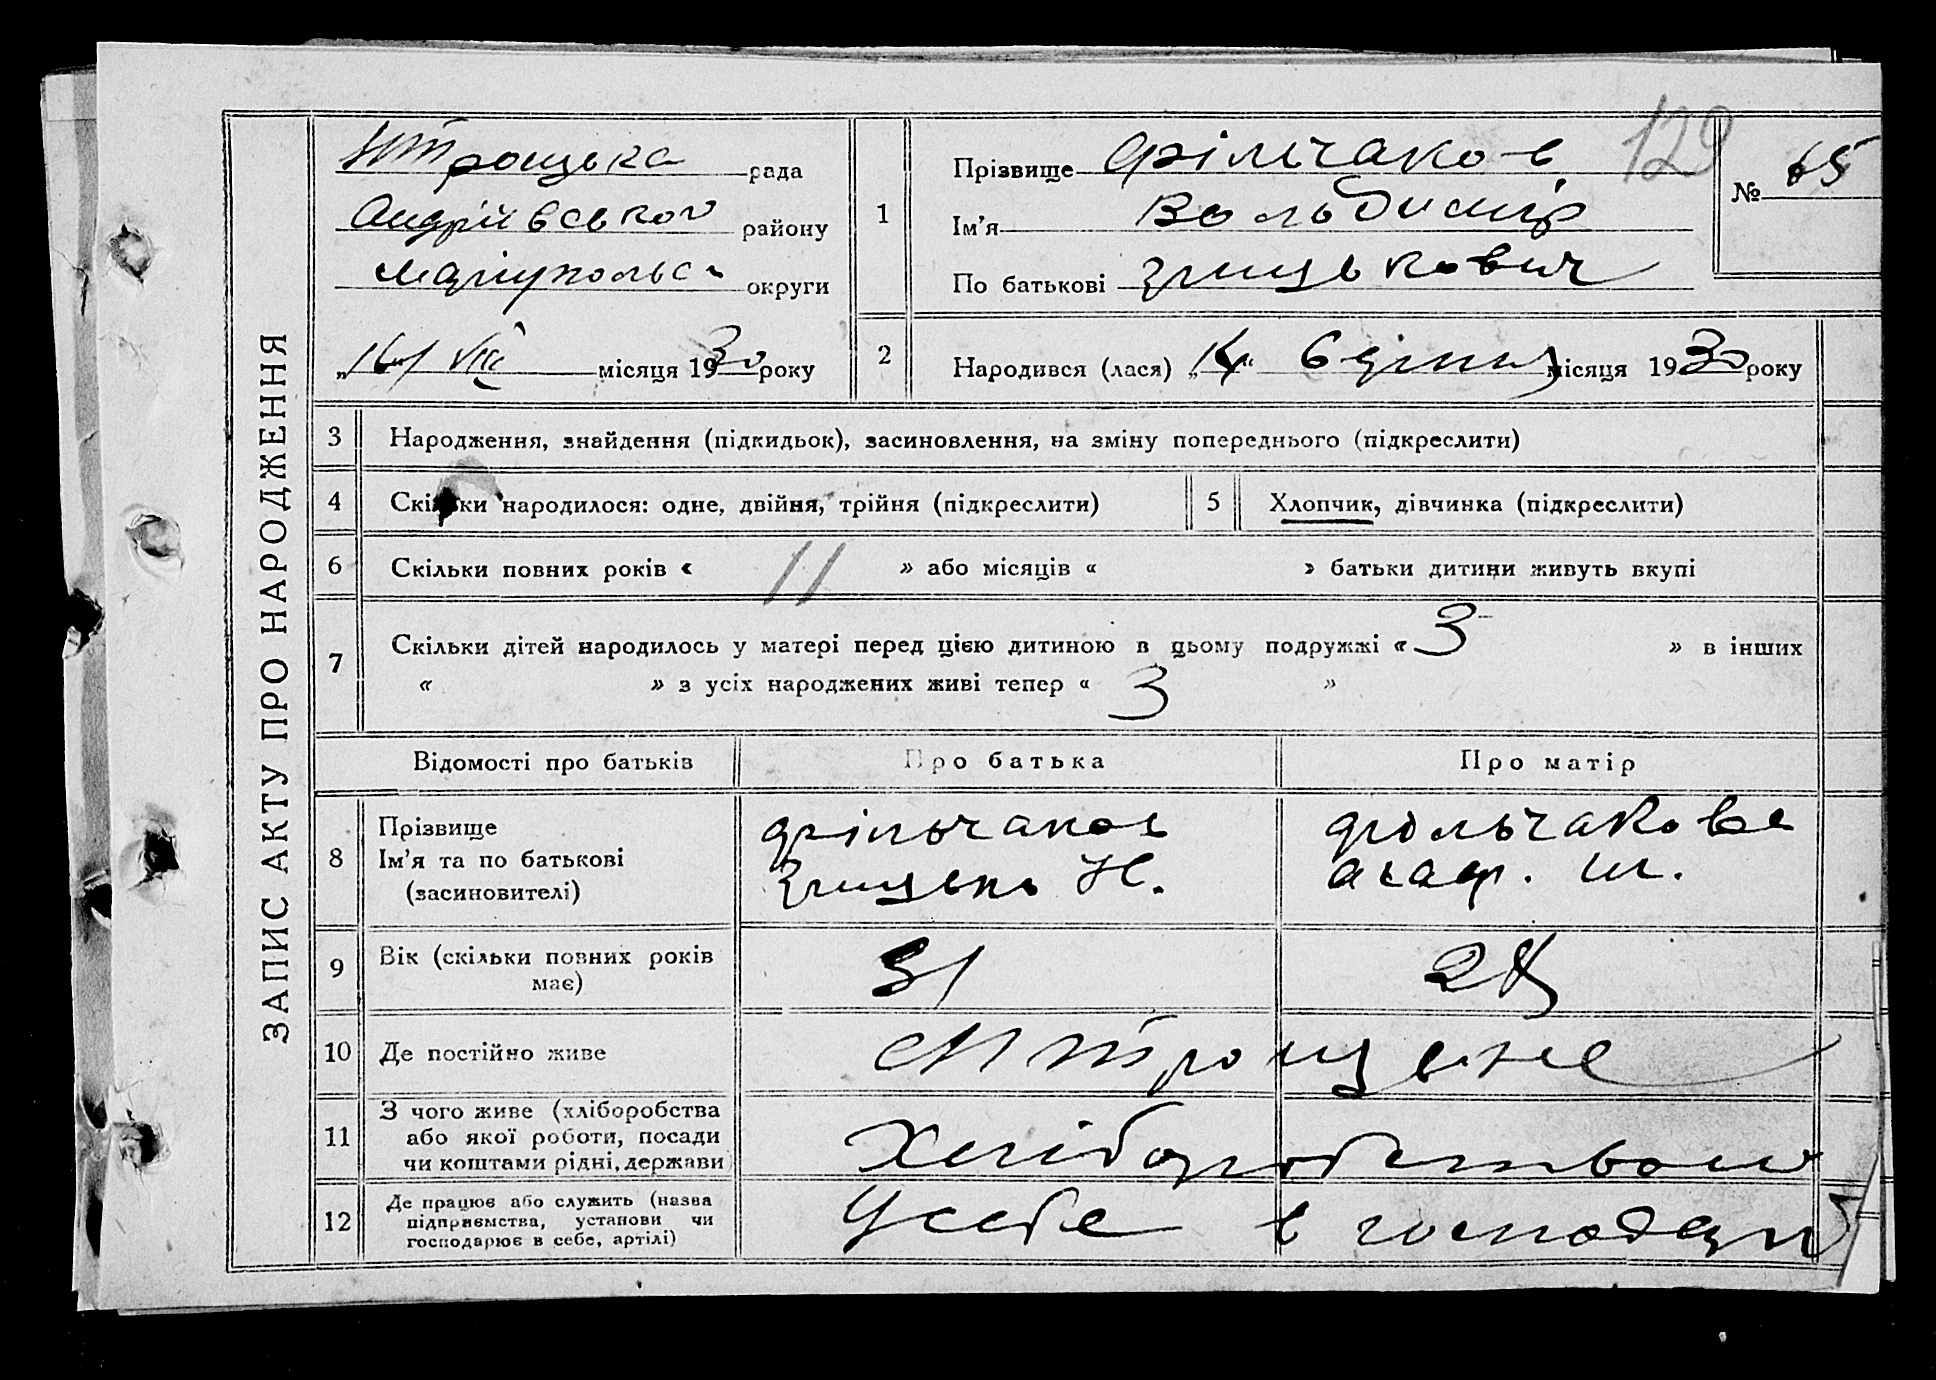 ЗАПИС АКТУ ПРО НАРОДЖЕННЯ
рада
Андріївського району
Маріупольс округи
„16“ VIII місяця 1930 року
129
№ 65
1
Прізвище Фрільчаков
Ім'я Вольдимір
По батькові Грицькович
2
Народився (лася) „14“ серпня місяця 1930 року
3
Народження, знайдення (підкидьок), засиновлення, на зміну попереднього (підкреслити)
4
Скільки народилося: одне, двійня, трійня (підкреслити)
5
Хлопчик, дівчинка (підкреслити)
6
Скільки повних років « 11 » або місяців « » батьки дитини живуть вкупі
7
Скільки дітей народилось у матері перед цією дитиною в цьому подружжі « 3 » в інших
« » з усіх народжених живі тепер « 3 »
Відомості про батьків
Про батька
Про матір
8
Прізвище
Ім'я та по батькові
(засиновителі)
Фрільчаков
Грицько Н.
Фрольчакова
Агаф. Ш.
9
Вік (скільки повних років
має)
31
28
10
Де постійно живе
11
З чого живе (хліборобства
або якої роботи, посади
чи коштами рідні, держави)
Хліборобством
12
Де працює або служить (назва
підприємства, установи чи
господарює в себе, артілі)
У себе в господар